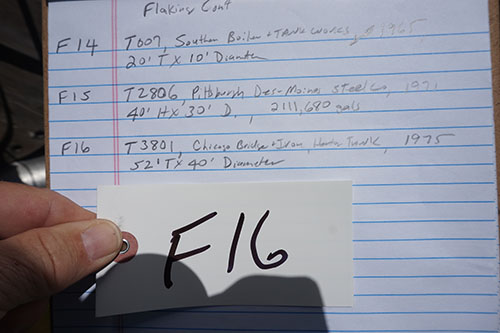 Flaking Cont
F14 T007, Southern Boiler + Tank Works, 1965,
20' T X 10' Diameter
F15 T2806, Pittsburgh Des-Moines Steel Co, 1971
40' H X 30' D. , 2111,680 gals
F16 T3801, Chicago Bridge + Iron, Horton Tank, 1975
52' T X 40' Diameter
F16